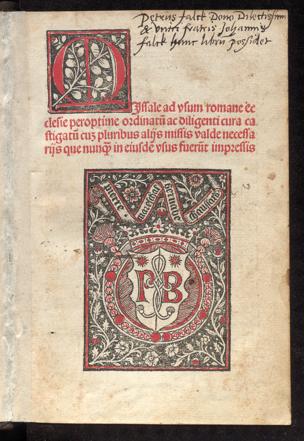 Petrus falck Dono Dilectissimi
& unici fratris Johannis
falck hunc librū possidet
Missale ad vsum romane ec
clesie peroptime ordinatū ac diligenti cura ca
stigatū cuȝ pluribus alijs missis valde necessa
rijs que nunqȝ in eiusdē vsus fuerūt impressis
pierre mareschal barnabe chaussard
P B